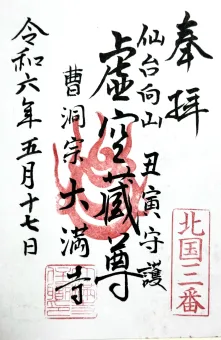 奉拝
北国三番
仙台向山　丑寅守護
虚空蔵尊
曹洞宗　大満寺
令和六年五月十七日